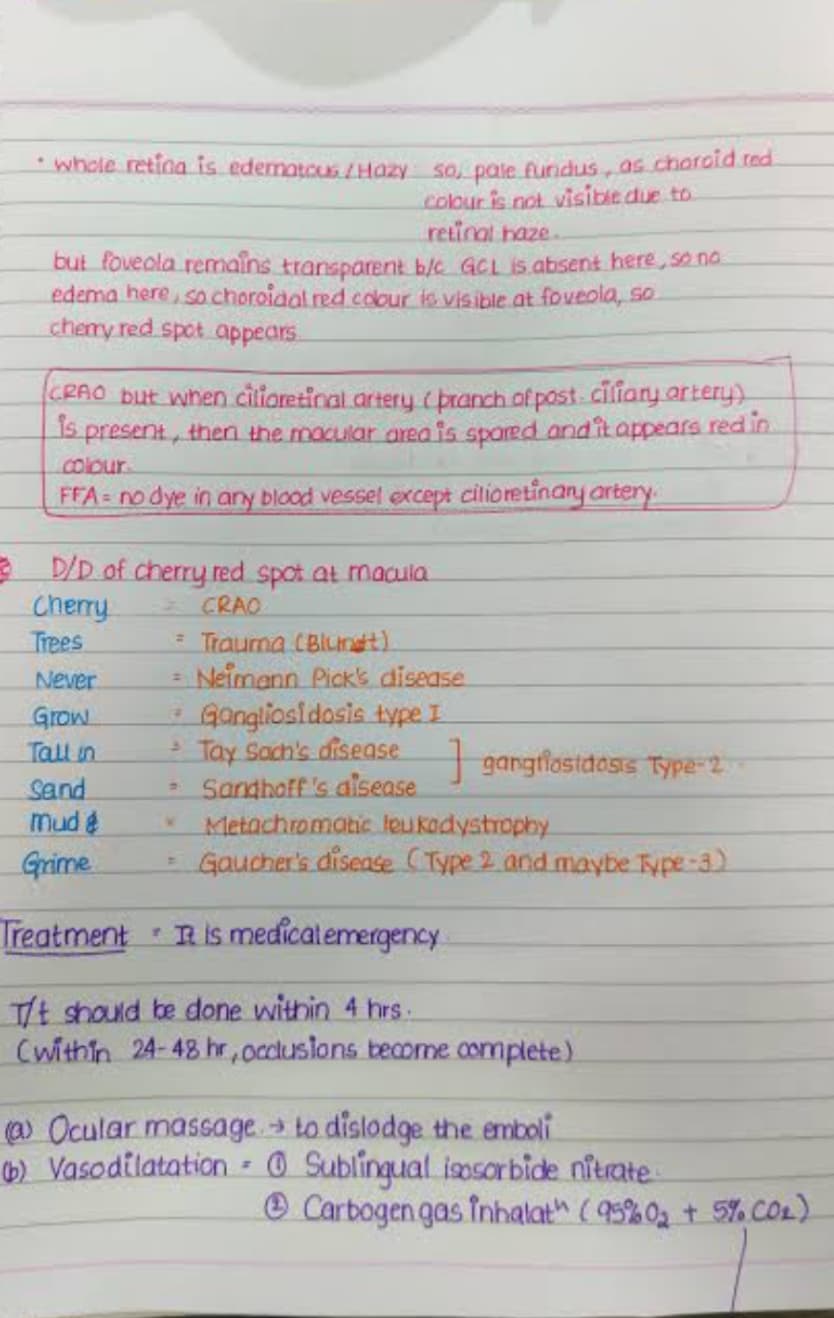 • whole retina is edematous / Hazy so, pale fundus, as choroid red
colour is not visible due to
retinal haze.
but foveola remains transparent b/c GCL is absent here, so no
edema here, so choroidal red colour is visible at foveola, so
cherry red spot appears
CRAO but when cilioretinal artery (branch of post. ciliary artery)
is present, then the macular area is spared and it appears red in
colour.
FFA = no dye in any blood vessel except cilioretinary artery.
D/D of cherry red spot at macula
Cherry = CRAO
Trees = Trauma (Blunt)
Never = Neimann Pick's disease
Grow = Gangliosidosis type I
Tall in = Tay Sach's disease ] gangliosidosis Type-2
Sand = Sandhoff's disease
mud & = Metachromatic leukodystrophy
Grime = Gaucher's disease (Type 2 and maybe Type-3)
Treatment = It is medical emergency.
T/t should be done within 4 hrs.
(within 24-48 hr, occlusions become complete)
(a) Ocular massage → to dislodge the emboli
(b) Vasodilatation = ① Sublingual isosorbide nitrate.
② Carbogen gas inhalatⁿ (95% O₂ + 5% CO₂)